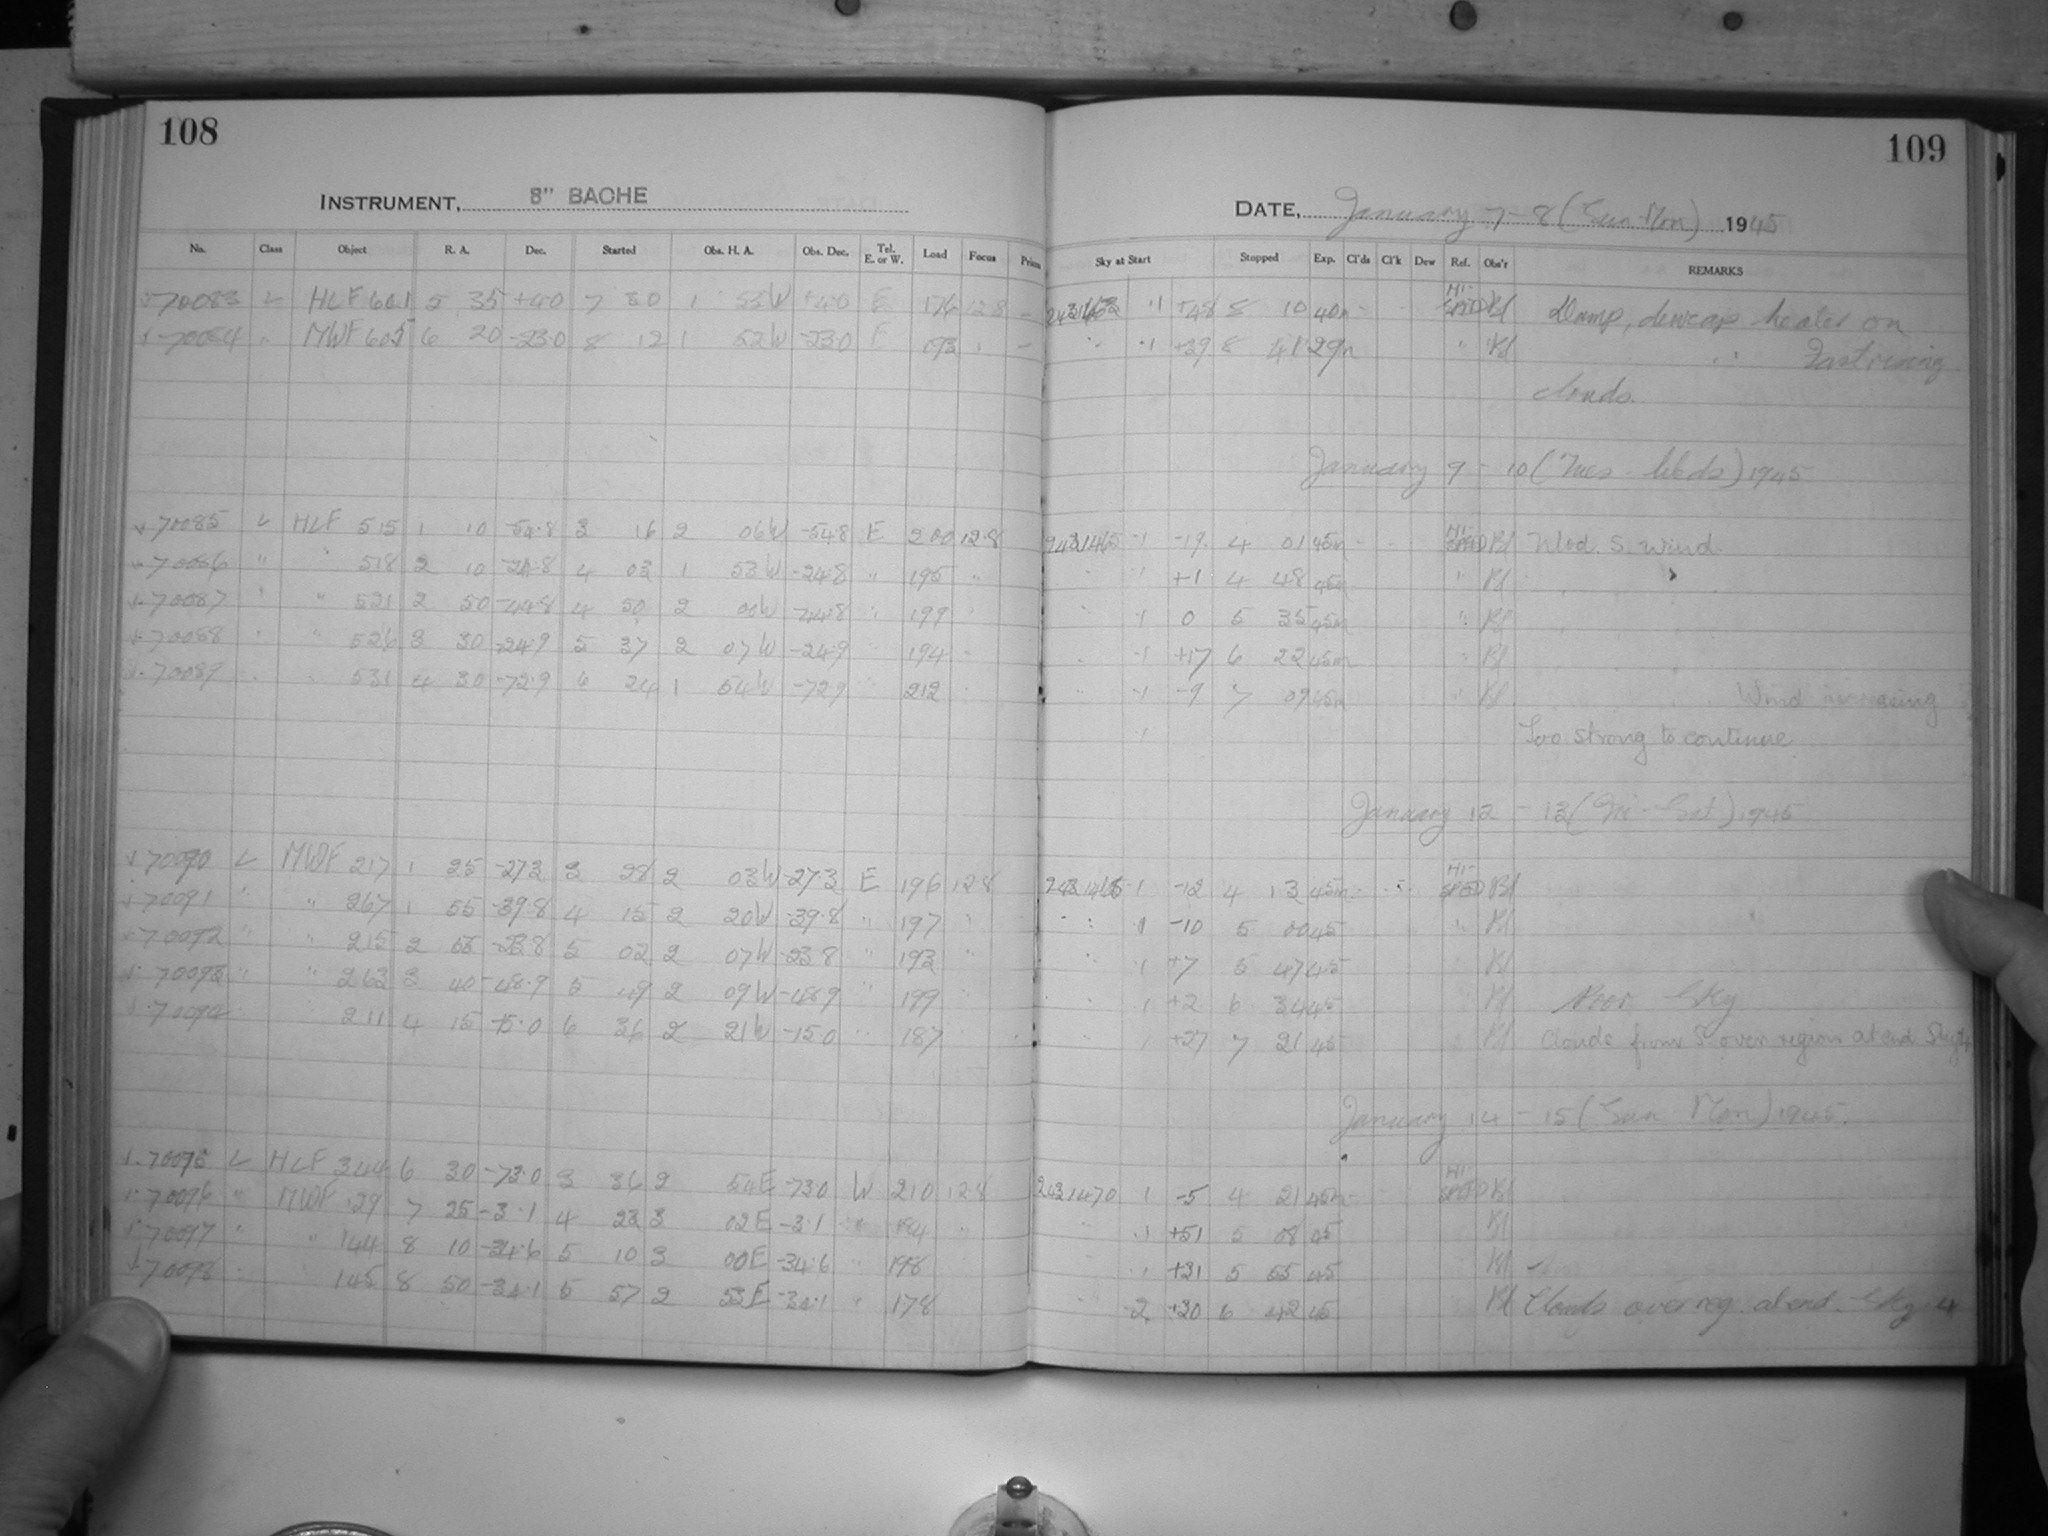 108
109
INSTRUMENT, 8" BACHE
DATE, January 7-8 (Sun-Mon) 1945
No. Class Object R. A. Dec. Started Obs. H. A. Obs. Dec. Tel. E. or W. Load Focus Sky at Start Stopped Exp. Cl'ds Cl'k Dew Ref. Obs'r REMARKS
70083 L HLF 601 5 35 +4.0 7 30 1 53W +4.0 E 176 12.8 - 2431463 .1 +48 8 10 40m HI-SPEED Bl Damp, dewcap heater on
70084 " MWF 605 6 20 -23.0 8 12 1 52W -23.0 E 193 - .1 +39 8 41 29m " Bl " Fast moving
clouds.
January 9 - 10 (Tues - Weds) 1945
70085 L HLF 515 1 10 -54.8 3 16 2 06W -54.8 E 200 12.8 2431465 .1 -19 4 01 45m HI-SPEED Bl Mod. S. wind
70086 " " 518 2 10 -24.8 4 03 1 53W -24.8 " 195 .1 +1 4 48 45m " Bl
70087 " " 521 2 50 -44.8 4 50 2 00W -44.8 " 199 .1 0 5 35 45m " Bl
70088 " " 526 3 30 -24.9 5 37 2 07W -24.9 " 194 .1 +17 6 22 45m " Bl
70089 531 4 30 -72.9 6 24 1 54W -72.9 " 212 .1 -9 7 09 45m " Bl Wind increasing
Too strong to continue.
January 12 - 13 (Fri - Sat) 1945
70090 L MWF 217 1 25 -27.3 3 28 2 03W -27.3 E 196 12.8 .1 -12 4 13 45m HI-SPEED Bl
70091 " " 267 1 55 -39.8 4 15 2 20W -39.8 " 197 .1 -10 5 00 45 " Bl
70092 " " 215 2 55 -23.8 5 02 2 07W -23.8 " 193 .1 +7 5 47 45 Bl
70093 " " 263 3 40 -48.9 5 49 2 09W -48.9 " 199 .1 +2 6 34 45 Bl Poor Sky
70094 211 4 15 -15.0 6 36 2 21W -15.0 " 187 .1 +27 7 21 45 Bl Clouds from S. over region at end
January 14 - 15 (Sun - Mon) 1945.
70095 L HLF 344 6 30 -73.0 3 36 2 54E -73.0 W 210 12.8 2431470 .1 -5 4 21 45m HI-SPEED Bl
70096 " MWF 129 7 25 -3.1 4 23 3 02E -3.1 " .1 +51 5 08 45 Bl
70097 " " 144 8 10 -34.6 5 10 3 00E -34.6 " 198 .1 +31 5 55 45 Bl
70098 145 8 50 -34.1 5 57 2 53E -34.1 " 178 .2 +30 6 42 45 Bl Clouds over reg. at end. Sky 4